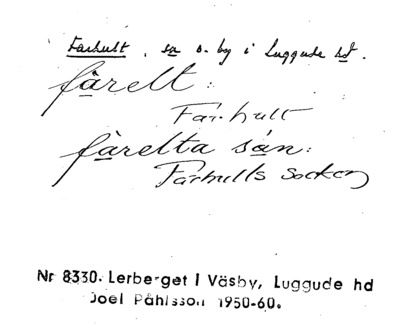 Farhult, sn o. by i Luggude hd.
fàrelt:
Farhult
fàrelta sån:
Farhults socken
Nr 8330. Lerberget i Väsby, Luggude hd
Joel Påhlsson 1950-60.